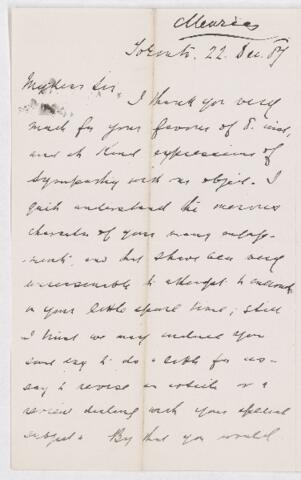 Toronto. 22 Dec. 87
My dear Sir.
I thank you very
much for your favour of 8. inst,
and its kind expressions of
sympathy with our object. I
quite understand the
character of your many engage-
ments, and
unreasonable to attempt to encroach
on your little spare time; still
I trust we may induce you
some day to do a little for us -
say to revise an article or a
review dealing with your special
subject. By that you would